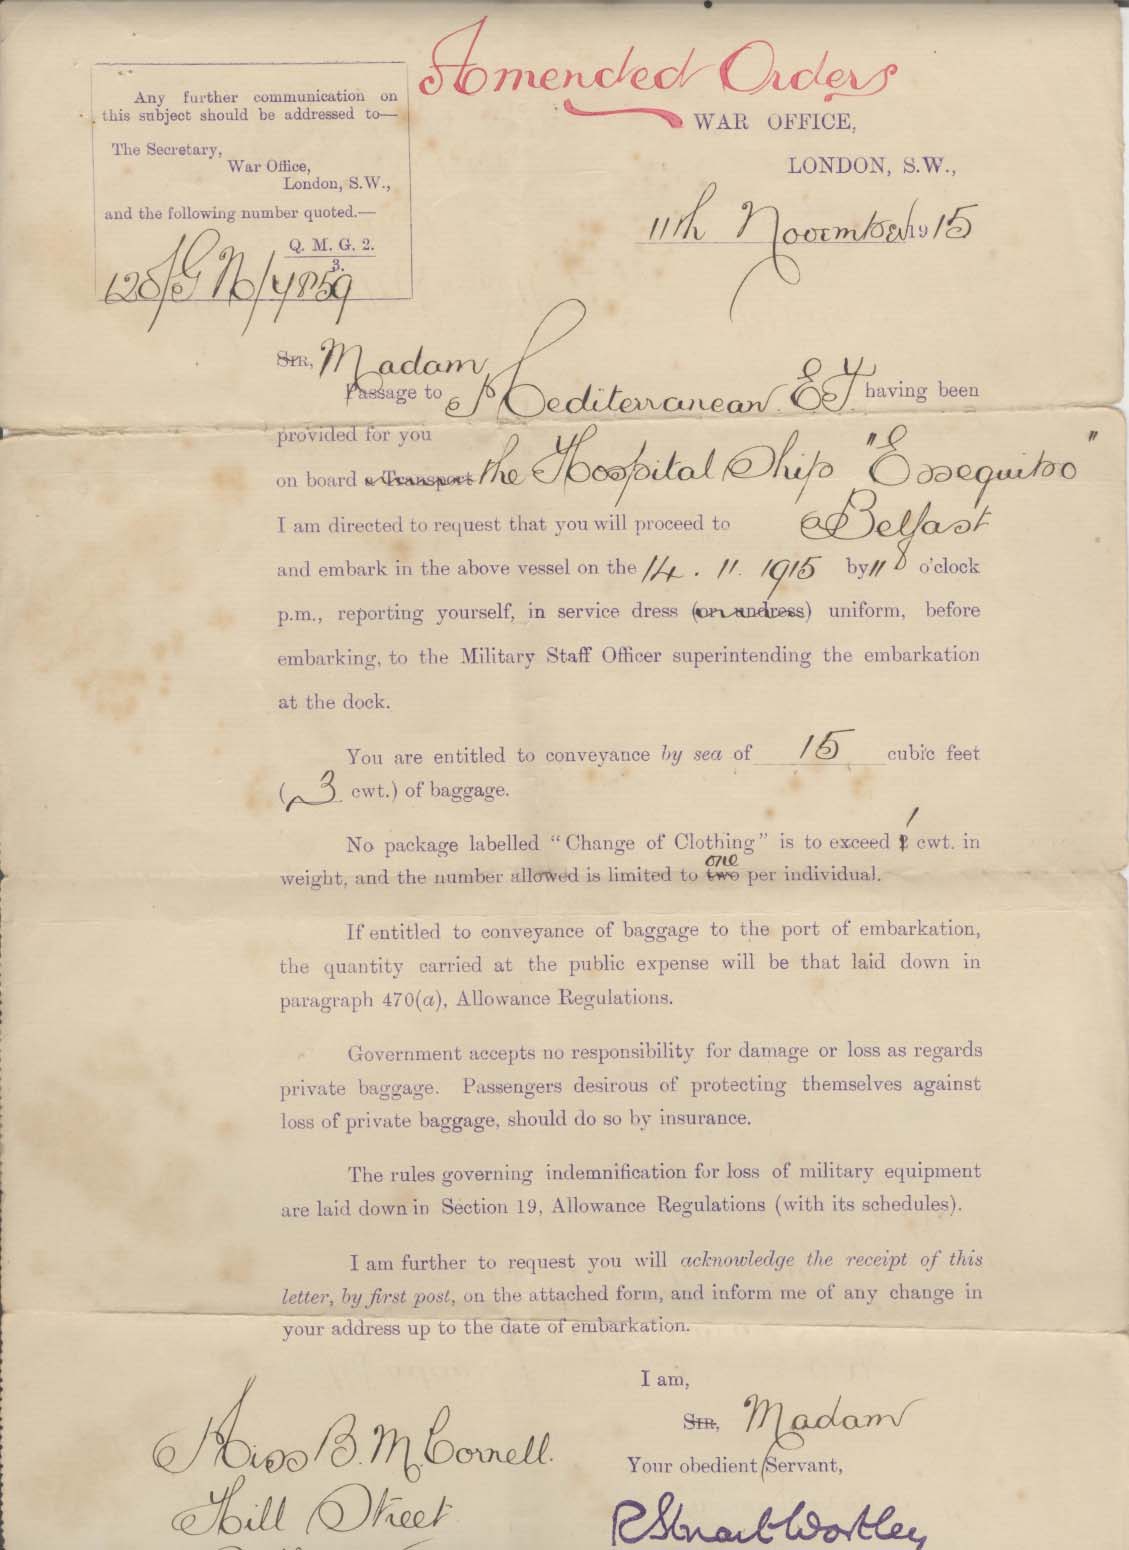 Amended Orders
Any further communication on
this subject should be addressed to—
The Secretary,
War Office,
London, S.W.,
and the following number quoted.—
Q. M. G. 2.
3.
WAR OFFICE,
LONDON, S.W.,
11th November 1915
Sir, Madam
Passage to Mediterranean E.F. having been
provided for you
on board a Transport the Hospital Ship "Essequibo"
I am directed to request that you will proceed to Belfast
and embark in the above vessel on the 14 . 11. 1915 by o'clock
p.m., reporting yourself, in service dress (or undress) uniform, before
embarking, to the Military Staff Officer superintending the embarkation
at the dock.
You are entitled to conveyance by sea of 15 cubic feet
( 3 cwt.) of baggage.
No package labelled "Change of Clothing" is to exceed 1 cwt. in
one
weight, and the number allowed is limited to two per individual.
If entitled to conveyance of baggage to the port of embarkation,
the quantity carried at the public expense will be that laid down in
paragraph 470(a), Allowance Regulations.
Government accepts no responsibility for damage or loss as regards
private baggage. Passengers desirous of protecting themselves against
loss of private baggage, should do so by insurance.
The rules governing indemnification for loss of military equipment
are laid down in Section 19, Allowance Regulations (with its schedules).
I am further to request you will acknowledge the receipt of this
letter, by first post, on the attached form, and inform me of any change in
your address up to the date of embarkation.
I am,
Sir, Madam
Your obedient Servant,
Miss B. M. Cornell.
Hill Street
R Stuart Wortley